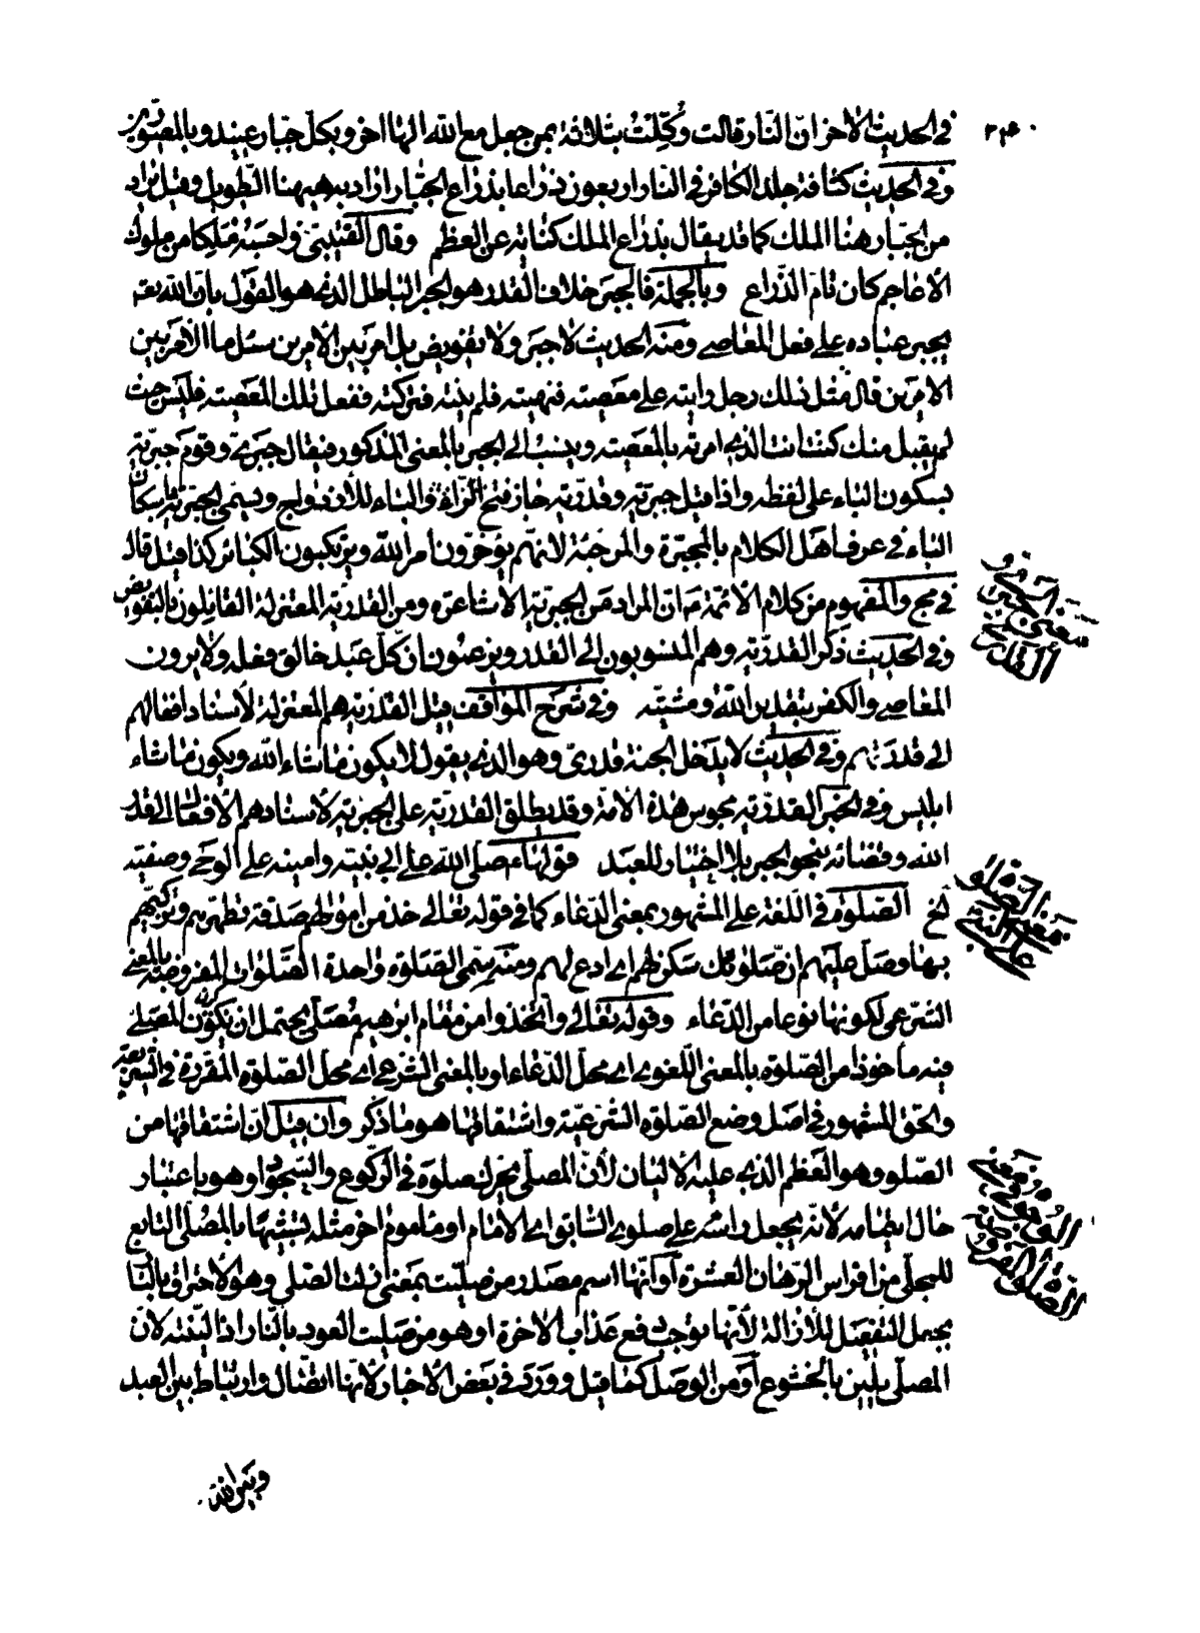 ٢٣٠
في الحديث الاخر انّ النّار قالت وُكِّلْتُ بثلاثة بمن جعل مع اللّه الها اخر وبكلّ جبّار عنيد وبالمصوّرين
وفي الحديث كثافة جلد الكافر في النّار اربعون ذراعا بذراع الجبّار اراد به هيهنا الطّويل وقيل يراد
من الجبّار هنا الملك كما قد يقال بذراع الملك كناية عن العظم وقال القتيبيّ واحسبه مَلِكا من ملوك
الاعاجم كان تامّ الذّراع وبالجملة فالجبر خلاف القدر هو الجبر الباطل الذي هو القول بانّ اللّه تعـ
يجبر عباده على فعل المعاصي ومنه الحديث لا جبر ولا تفويض بل امر بين الامرين سئل ما الامر بين
الامرين قال مَثَل ذلك رجل رايته على معصية فنهيته فلم ينته فتركته ففعل تلك المعصية فليس حيث
لم يقبل منك كنت انت الذي امرته بالمعصية وينسب الى الجبر بالمعنى المذكور فيقال جبريّ وقوم جبريّة
بسكون الباء على لفظه واذا قيل جبريّة وقدريّة جاز فتح الرّاء والباء للازدواج ويسمّى الجبريّة باسكان
الباء في عرف اهل الكلام بالمجبّرة والمرجئة لانهم يؤخّرون امر اللّه ويرتكبون الكبائر كذا قيل قال
في مج والمفهوم من كلام الائمّة ع ان المراد من الجبريّة الاشاعره ومن القدريّة المعتزلة القائلون بالتفويض
وفي الحديث ذكر القدريّة وهم المنسوبون الى القدر ويزعمون انّ كلّ عبد خالق فعله ولا يرون
المعاصي والكفر بتقدير اللّه ومشيّته وفي شرح المواقف قيل القدريّة هم المعتزلة لاسناد افعالهم
الى قدرتهم وفي الحديث لا يدخل الجنة قدريّ وهو الذي يقول لا يكون ما شاء اللّه ويكون ما شاء
ابليس وفي الخبر القدريّة مجوس هذه الامّة وقد يطلق القدريّة على الجبريّة لاسنادهم الافعال الى قدر
اللّه وقضائه بنحو الجبر بلا اختيار للعبد قولها ع صلى اللّه على ابي نبيّه وامينه على الوحي وصفيّه
الخ الصّلوة في اللّغة على المشهور بمعنى الدّعاء كما في قوله تعالى خذ من اموالهم صدقة تطهّرهم وتزكّيهم
بها وصلّ عليهم ان صلوتك سكن لهم اي ادع لهم ومنه سمّى الصّلوة واحدة الصّلوات المفروضة بالمعنى
الشّرعي لكونها نوعا من الدّعاء وقوله تعالى واتّخذوا من مقام ابرهيم مُصَلّى يحتمل ان يكون المصلّى
فيه ماخوذا من الصّلوة بالمعنى اللّغوي اي محلّ الدّعاء او بالمعنى الشّرعي اي محلّ الصّلوة المقرّرة في الشّريعة
والحق المشهور في اصل وضع الصّلوة الشّرعيّة واشتقاقها هو ما ذكر وان قيل انّ اشتقاقها من
الصّلو وهو العظم الذي عليه الاليان لانّ المصلّي يحرّك صلوَه في الرّكوع والسّجود او هو باعتبار
حال ايتمامه لانّه يجعل راسه على صلوي السّابق اي الامام او ماموم اخر مثله تشبيها بالمصلّي التابع
للمجلّي من افراس الرّهان العشرة او انّها اسم مصدر من صلّيت بمعنى ازلت الصّلي وهو الاحتراق بالنّار
يجعل التّفعيل للازالة لانّها توجب دفع عذاب الاخرة او هو من صليت العود بالنّار اذا ليّنته لانّ
المصلّي يلين بالخشوع او من الوصل كما قيل وورد في بعض الاخبار لانّها اتّصال وارتباط بين العبد
وبين اللّه
معنى الجبر و
القدر
معنى الصّلوة
على النبي
الصّلوة